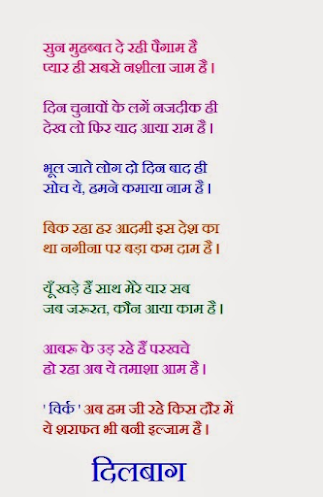 सुन मुहब्बत दे रही पैगाम है
प्यार ही सबसे नशीला जाम है ।
दिन चुनावों के लगें नजदीक ही
देख लो फिर याद आया राम है ।
भूल जाते लोग दो दिन बाद ही
सोच ये, हमने कमाया नाम है ।
बिक रहा हर आदमी इस देश का
था नगीना पर बड़ा कम दाम है ।
यूँ खड़े हैं साथ मेरे यार सब
जब जरूरत, कौन आया काम है ।
आबरू के उड़ रहे हैं परखचे
हो रहा अब ये तमाशा आम है ।
' विर्क ' अब हम जी रहे किस दौर में
ये शराफत भी बनी इल्जाम है ।
दिलबाग